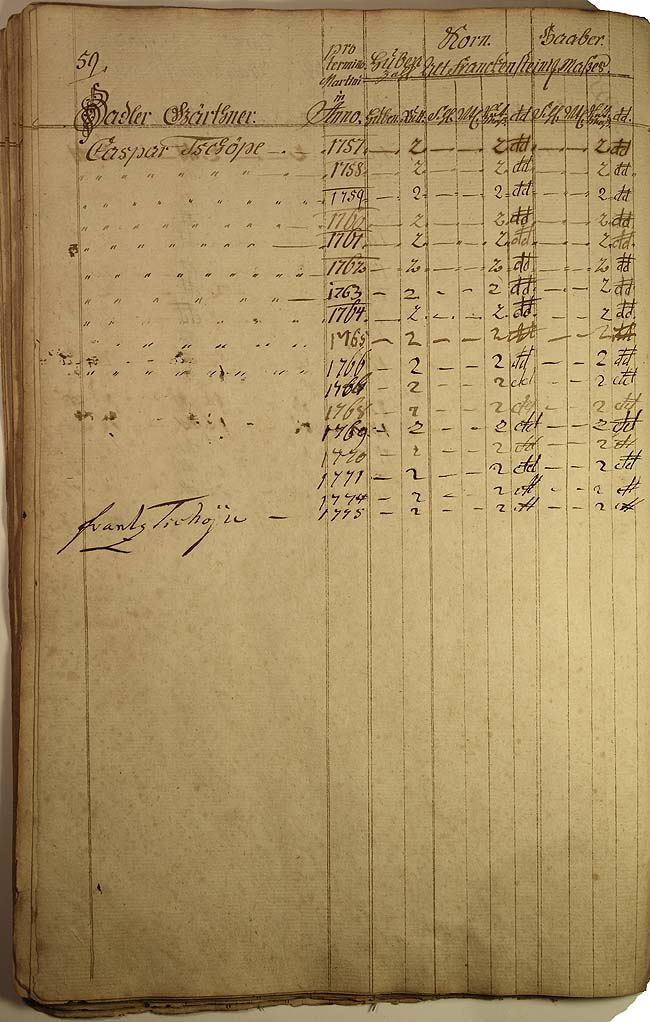 59.
Pro termino Martini in Anno.
Korn. Haaber.
Huben Zahl
Sadler Gärthner.
Huben. Rutt.
Caspar Tschöpe — 1757 — 2 — — 2 dd — — 2 dd
" " " " " " " 1758 — 2 — — 2 dd — — 2 dd
" " " " " " " 1759 — 2 — — 2 dd — — 2 dd
" " " " " " " 2 — — 2 dd — — 2 dd
" " " " " — 1761 — 2 — — 2 dd — — 2 dd
" " " " " " " 1762 — 2 — — 2 dd — — 2 dd
" " " " " — 1763 — 2 — — 2 dd — — 2 dd
" " " " " " " 1764 — 2 — — 2 dd — — 2 dd
" " " " " " " 1765 — 2 — — 2 dd — — 2 dd
" " " " " " " 1766 — 2 — — 2 dd — — 2 dd
— 2 — — 2 dd — — 2 dd
1768 — 2 — — 2 dd — — 2 dd
1769 — 2 — — 2 dd — — 2 dd
1770 — 2 — — 2 dd — — 2 dd
1771 — 2 — — 2 dd — — 2 dd
1774 — 2 — — 2 dd — — 2 dd
Frantz Tschöpe — 1775 — 2 — — 2 dd — — 2 dd